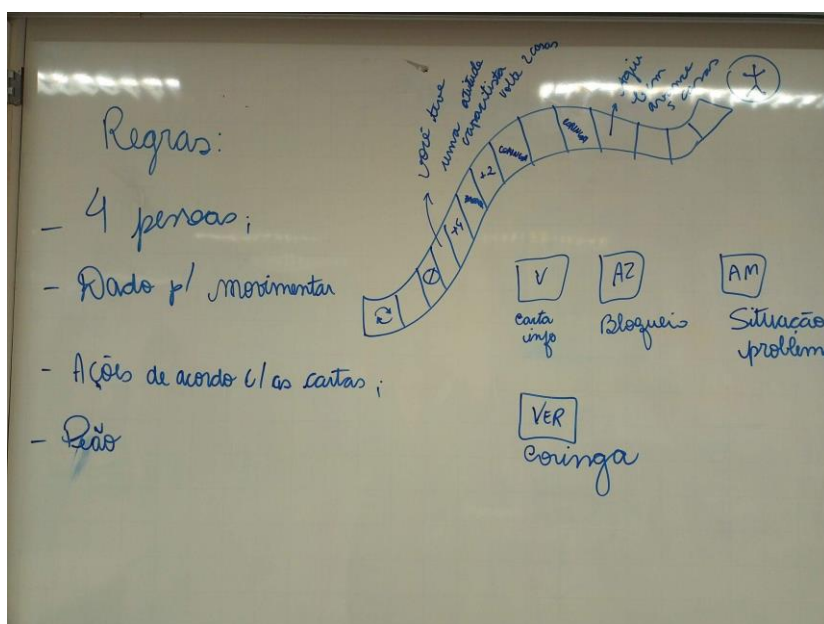 Regras:
- 4 pessoas;
- Dado p/ movimentar
- Ações de acordo c/ as cartas;
- Peão
você teve
uma atitude
capacitista
volte 2 casas
+2
CORINGA
CORINGA
V
Carta
info
AZ
Bloqueio
AM
Situação
problem
VER
Coringa